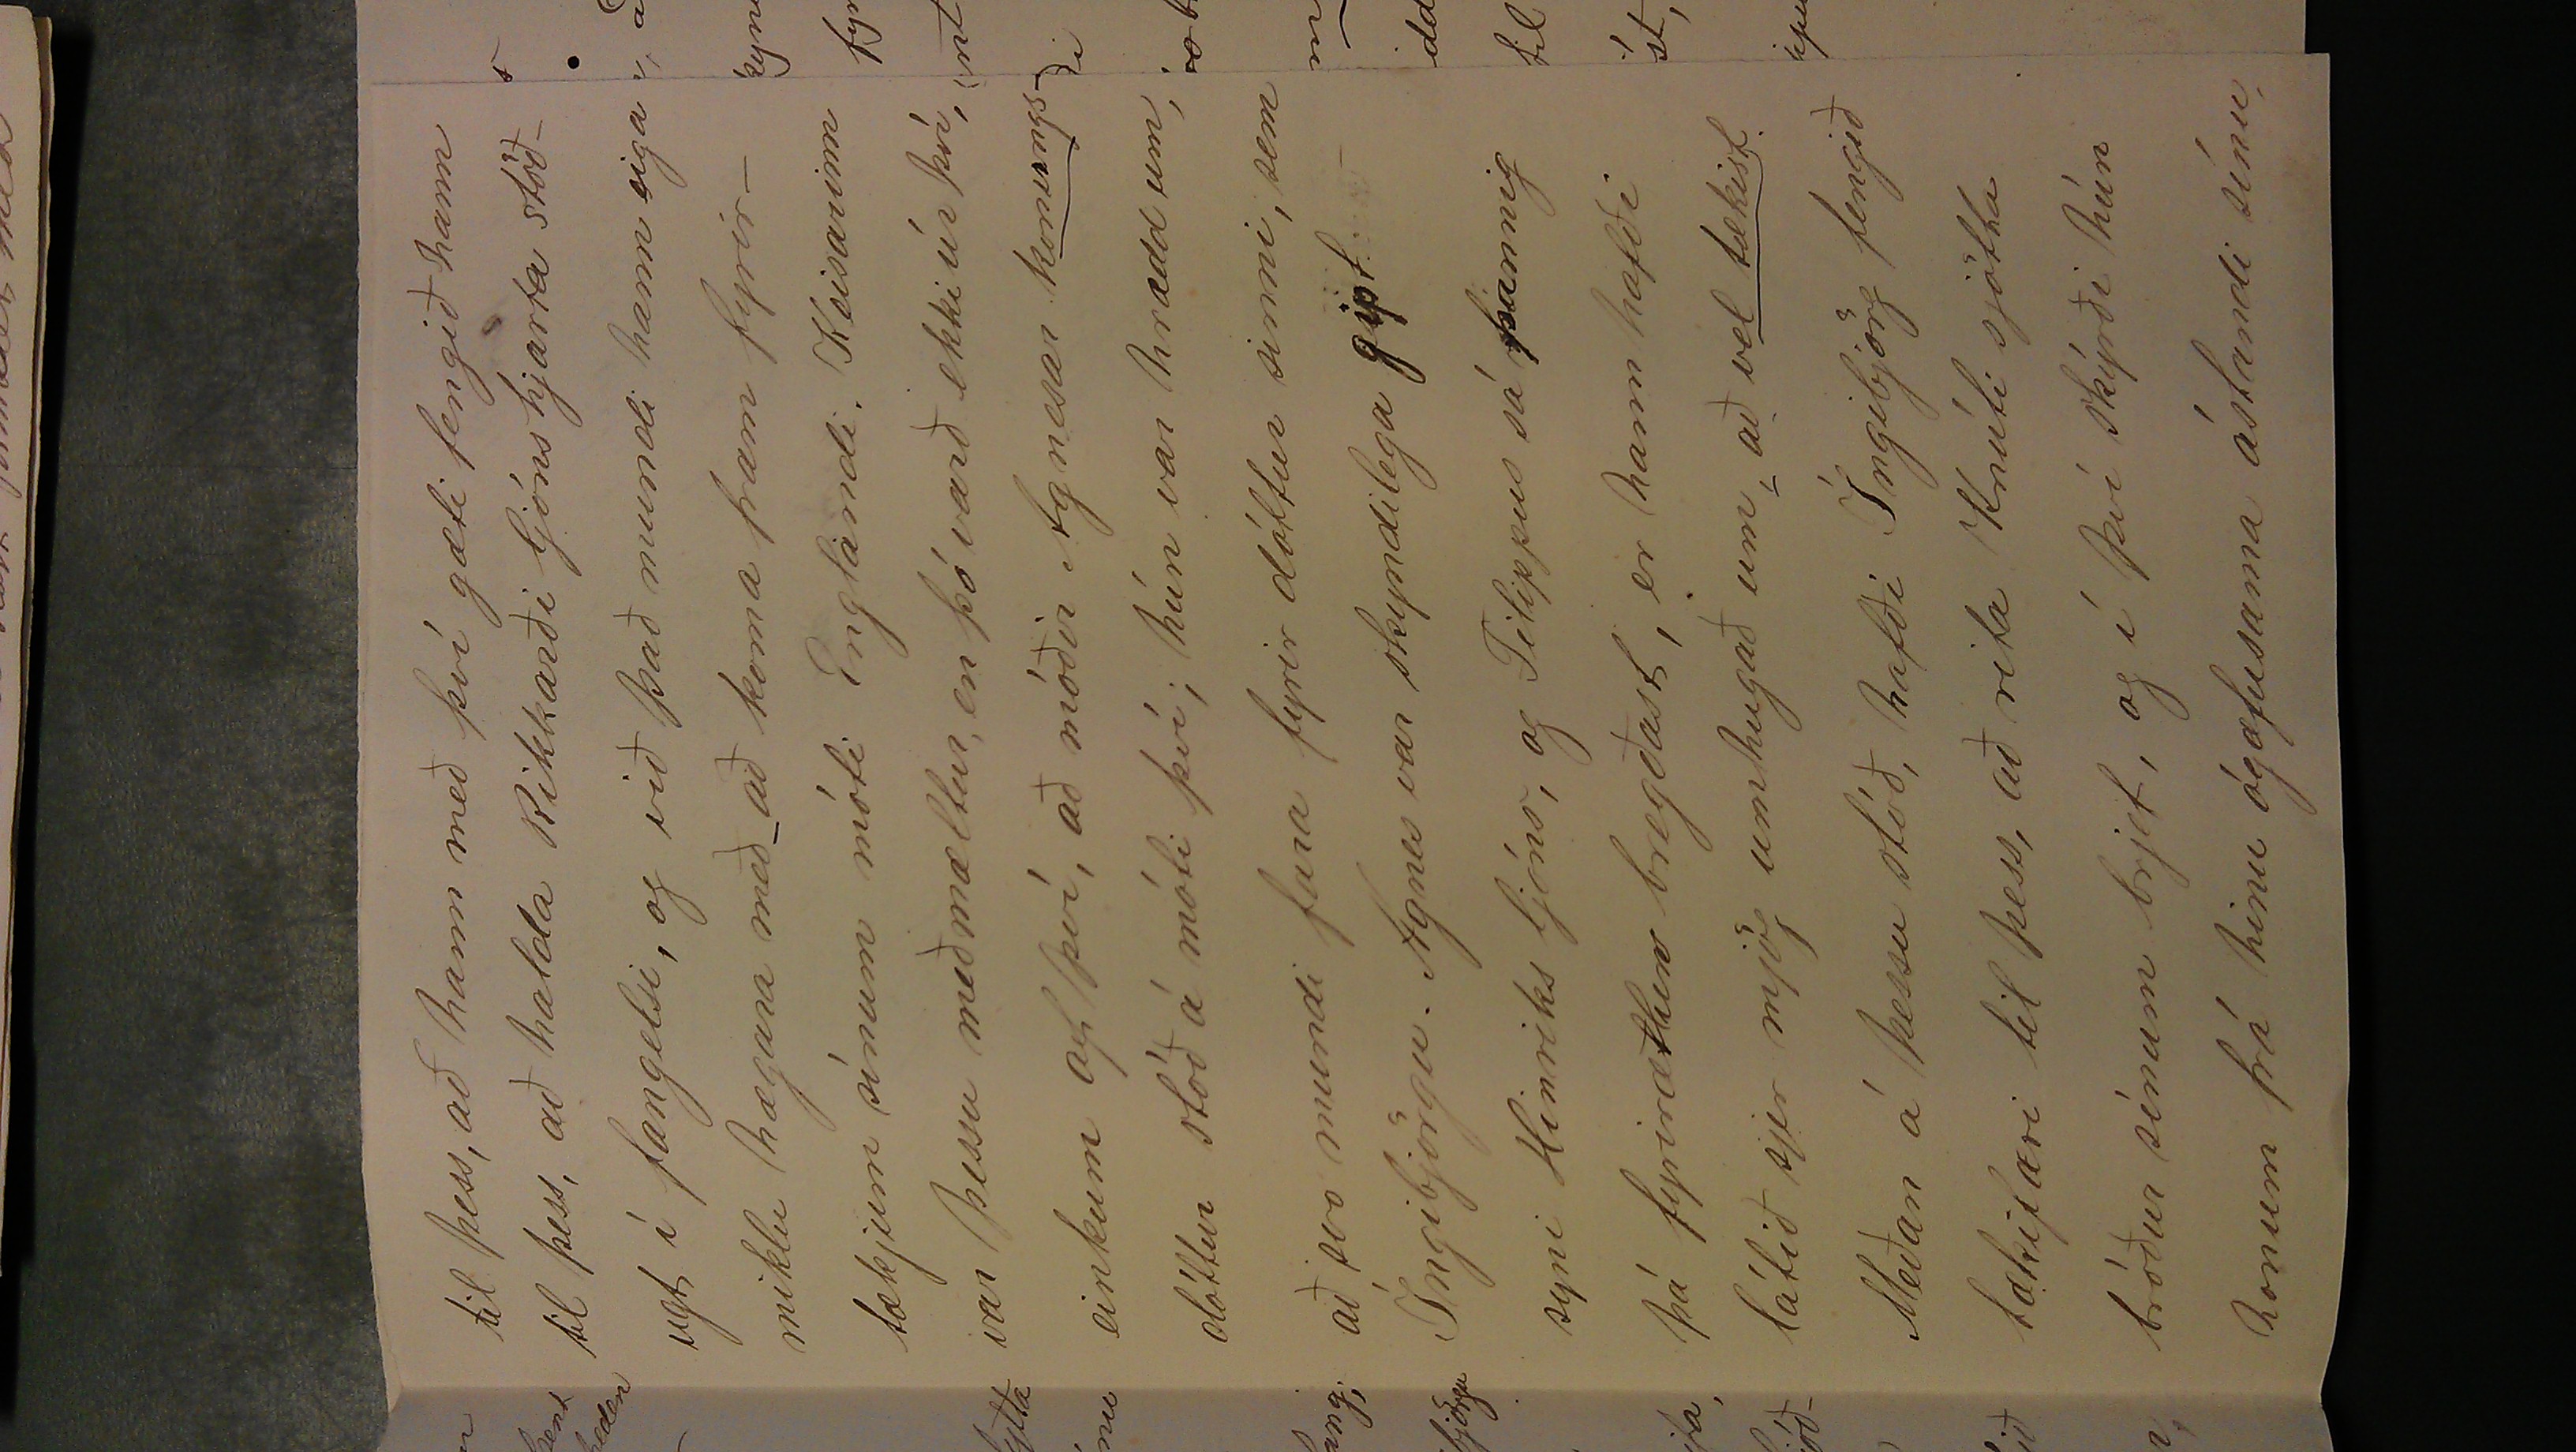 til þess, að hann með því gæti fengið hann
til þess, að halda Rikkarði Ljónshjarta stöð-
ugt í fangelsi, og við það mundi hann eiga
miklu hægara með að koma fram fyrir-
tækjum sínum móti Englandi. Keisarinn
var þessu meðmæltur, en þó varð ekki úr því,
einkum af því, að móðir Agnesar konungs-
dóttur stóð á móti því; hún var hrædd um,
að svo mundi fara fyrir dóttur sinni, sem
Ingibjörgu. Agnes var skyndilega gipt
syni Hinriks Ljóns, og Filippus sá þannig
þá fyrirætlun bregðast, er hann hafði
látið sjer mjög umhugað um að vel tækist.
Meðan á þessu stóð, hafði Ingibjörg fengið
tækifæri til þess, að rita Knúti sjötta
bróður sínum brjef, og í því skýrði hún
honum frá hinu ógæfusama ástandi sínu,